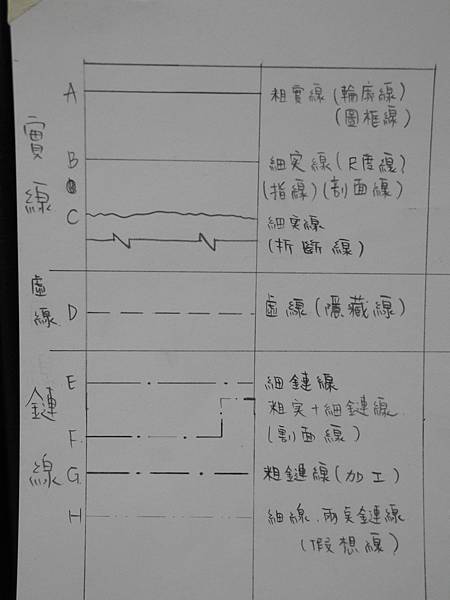 實線
A 粗實線(輪廓線)
(圖框線)
B 細実線(尺度線)
(指線)(剖面線)
C 細実線
(折斷線)
虛線
D 虛線(隱藏線)
鏈線
E 細鏈線
F 粗実+細鏈線
(割面線)
G 粗鏈線(加工)
H 細線.兩実鏈線
(假想線)